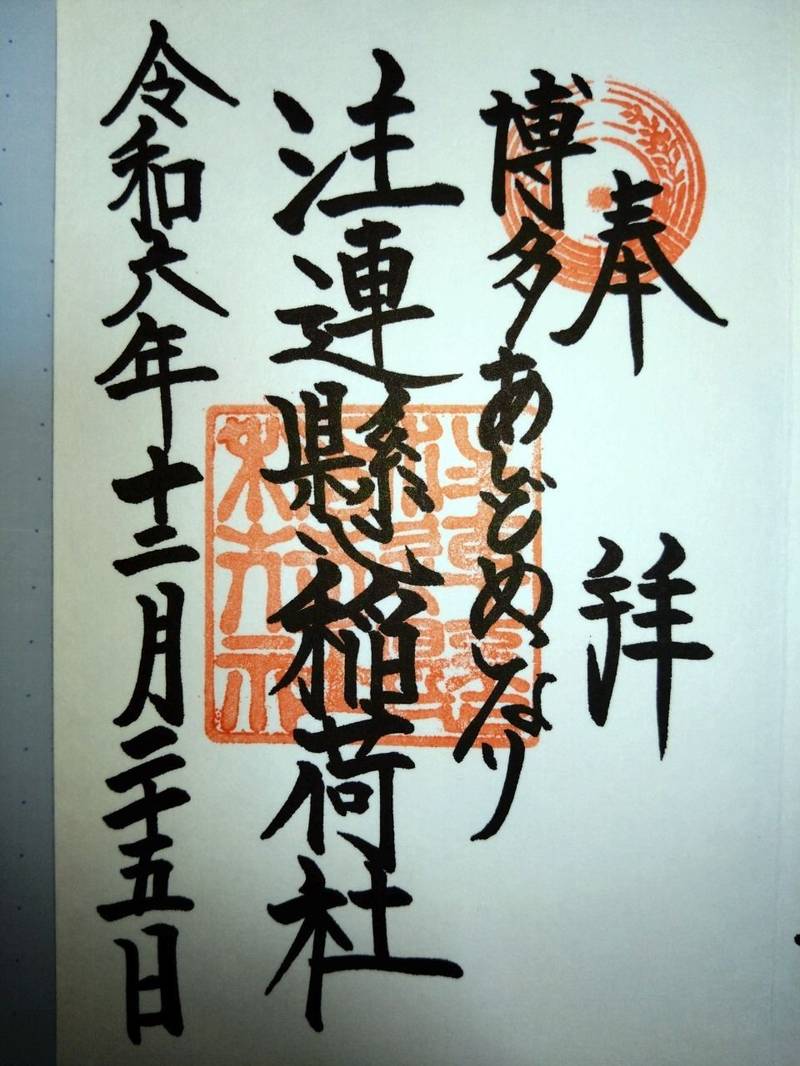 奉拝
博多あしどめいなり
注連懸稲荷社
令和六年十二月二十五日